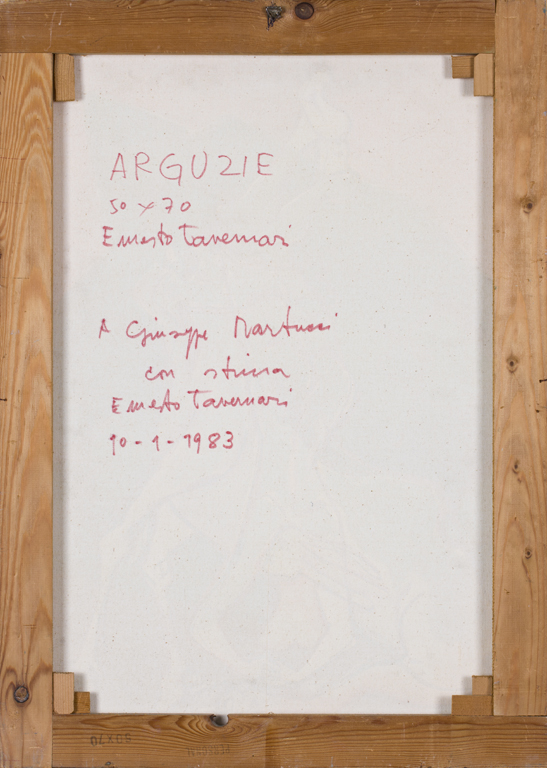 ARGUZIE
50 x 70
Ernesto Tavernari
A Giuseppe Martucci
con stima
Ernesto Tavernari
10-1-1983
50X70